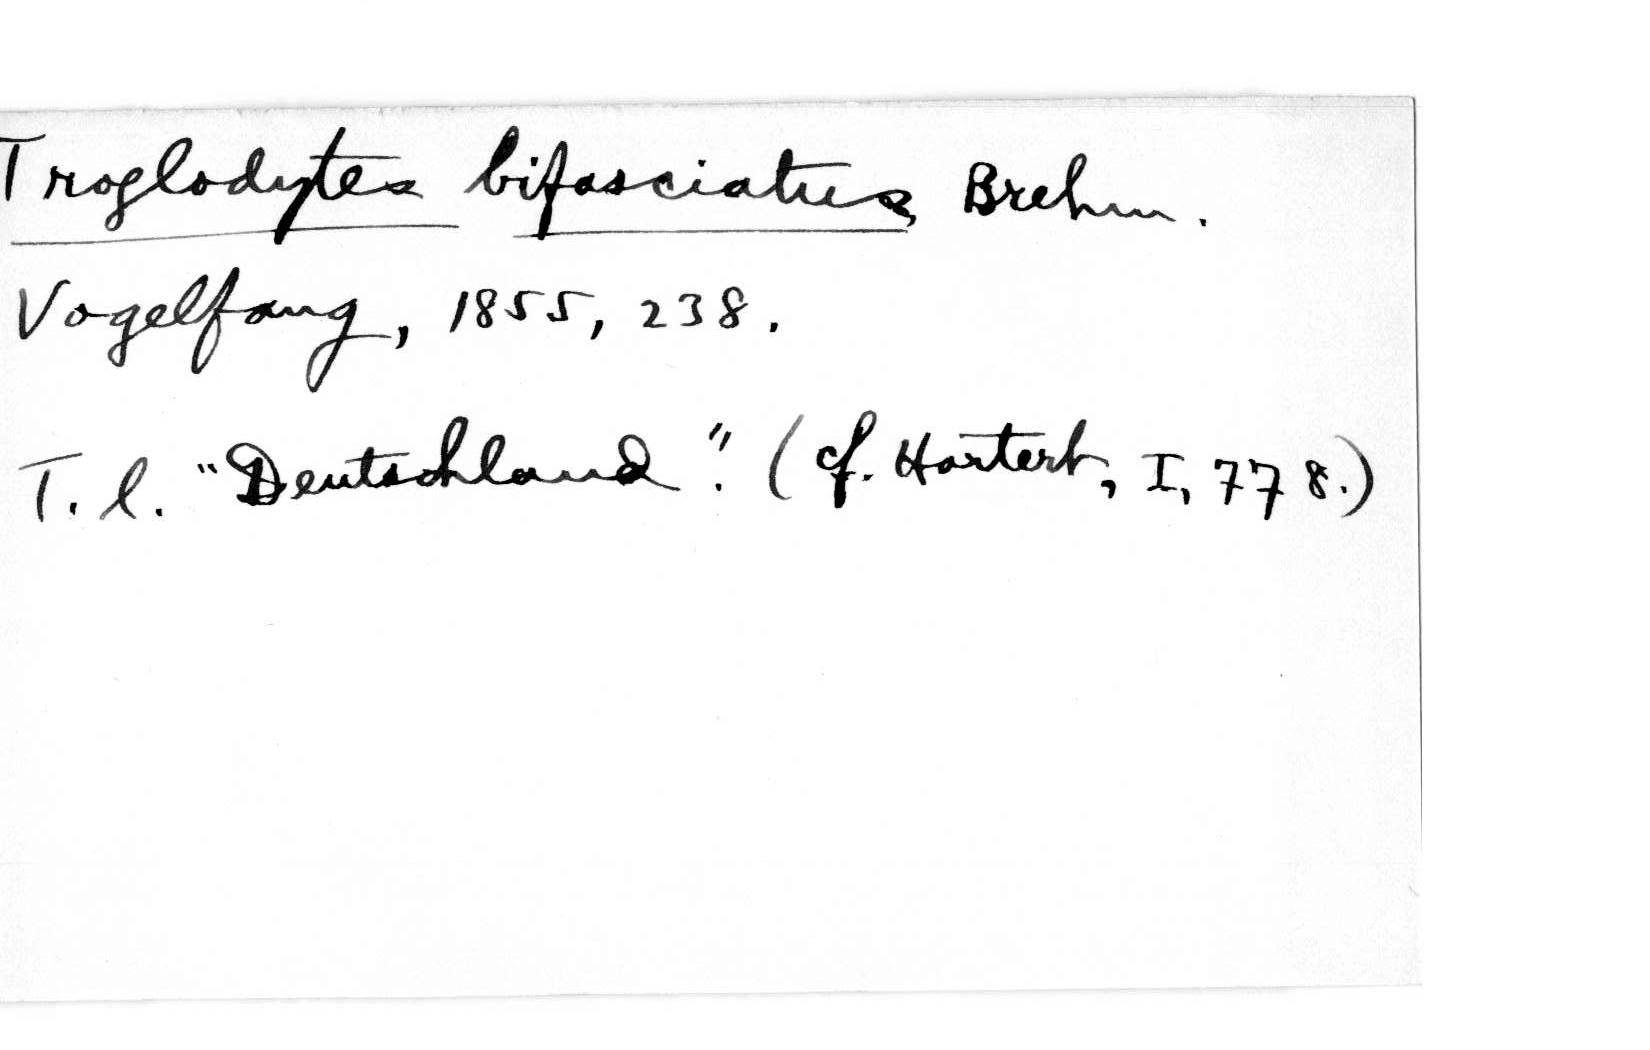 Troglodytes bifasciatus, Brehm.
Vogelfang, 1855, 238.
T. l. "Deutschland". (cf. Hartert, I, 778.)